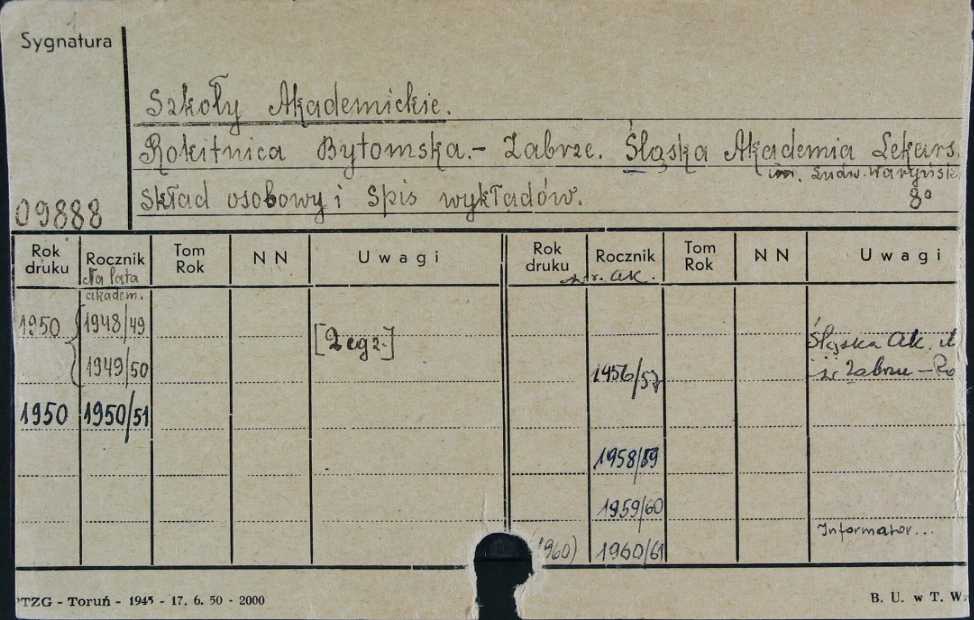 Sygnatura
Szkoły Akademickie.
Rokitnica Bytomska.- Zabrze. Śląska Akademia Lekars.
im. Ludw. Waryńsk.
Skład osobowy i Spis wykładów. 8°
09888
Rok druku Rocznik Tom Rok NN Uwagi Rok druku Rocznik Tom Rok NN Uwagi
Na lata akadem. ak.
1950 1948/49 [2 egz.] Śląska Ak.
1949/50 1956/57 Zabrze - Ro
1950 1950/51
1958/59
1959/60
Informator...
1960) 1960/61
PTZG - Toruń - 1945 - 17. 6. 50 - 2000 B. U. w T. W.